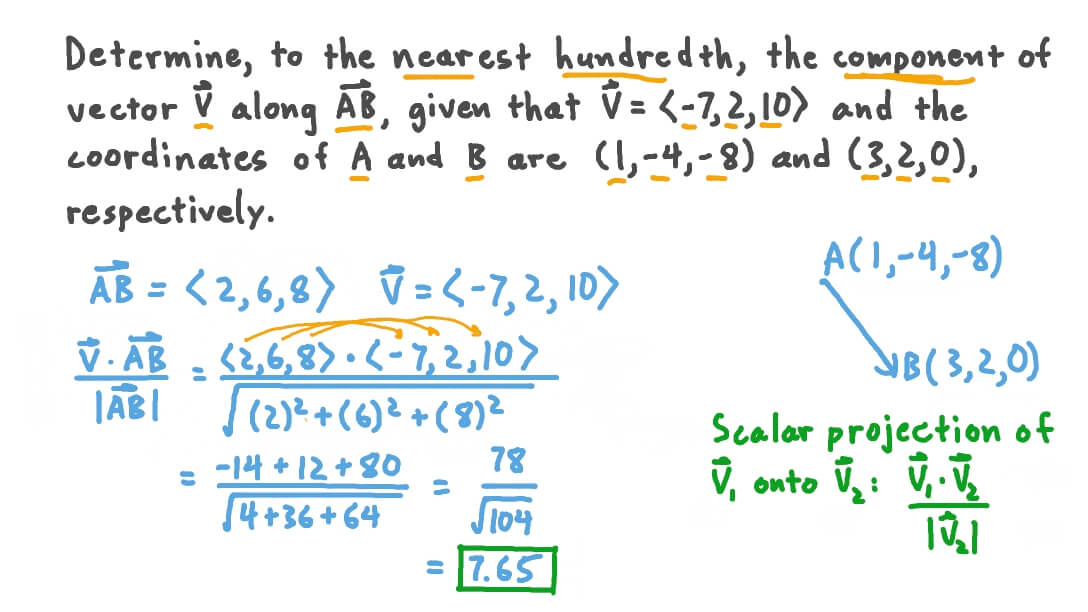 Determine, to the nearest hundredth, the component of
vector V⃗ along A⃗B⃗, given that V⃗ = ⟨-7, 2, 10⟩ and the
coordinates of A and B are (1, -4, -8) and (3, 2, 0),
respectively.
A⃗B⃗ = ⟨2, 6, 8⟩ V⃗ = ⟨-7, 2, 10⟩
A(1, -4, -8)
V⃗ · A⃗B⃗ / |A⃗B⃗| = ⟨2, 6, 8⟩ · ⟨-7, 2, 10⟩ / √((2)² + (6)² + (8)²)
B(3, 2, 0)
= -14 + 12 + 80 / √(4 + 36 + 64) = 78 / √104
= 7.65
Scalar projection of
V⃗₁ onto V⃗₂ : V⃗₁ · V⃗₂ / |V⃗₂|